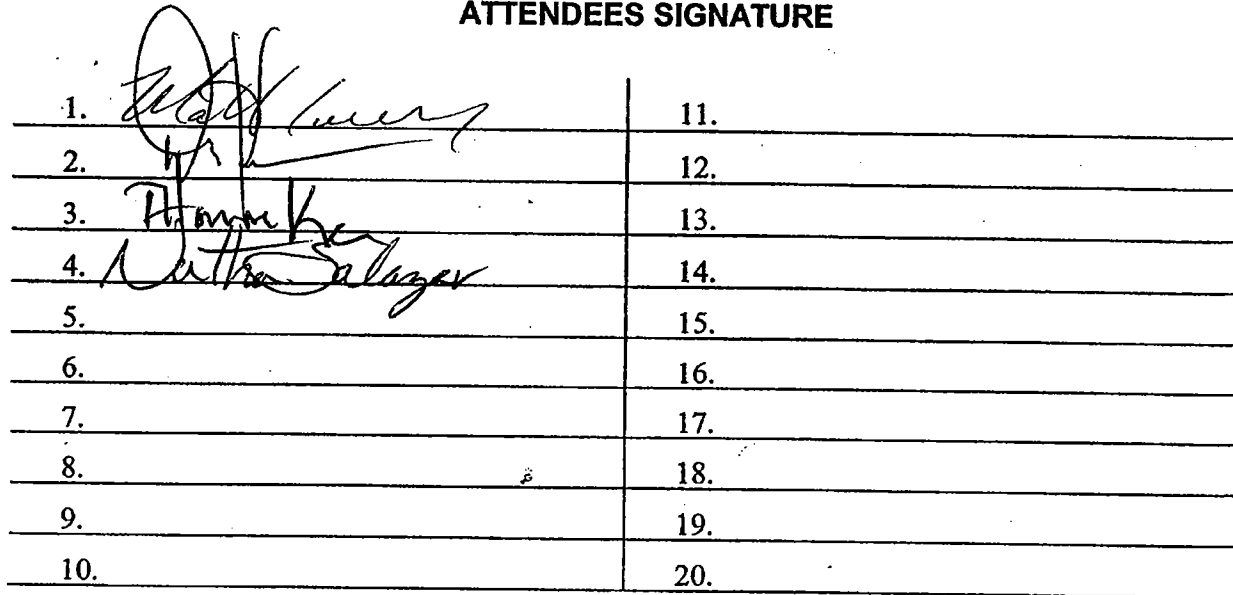 ATTENDEES SIGNATURE
1.
2.
3.
4. Salazar
5.
6.
7.
8.
9.
10.
11.
12.
13.
14.
15.
16.
17.
18.
19.
20.